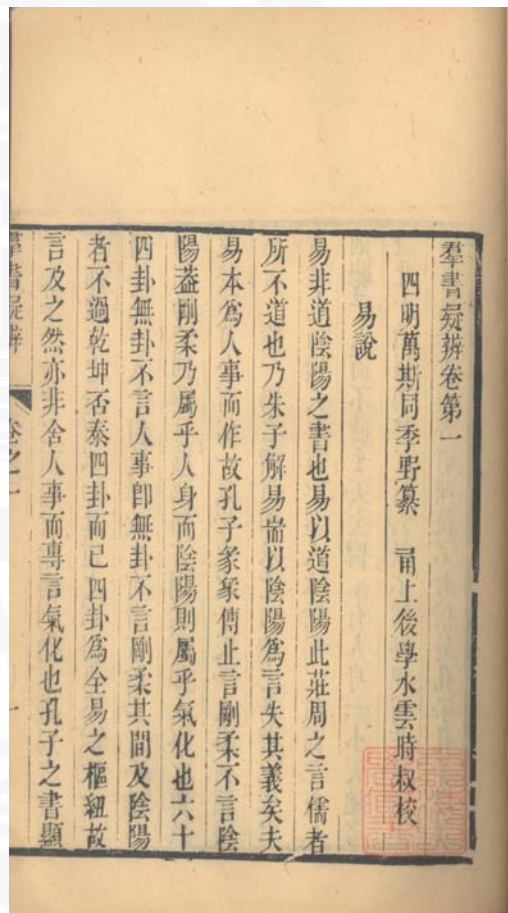 羣書疑辨卷第一
四明萬斯同季野纂 甬上後學水雲時叔校
易說
易非道陰陽之書也易以道陰陽此莊周之言儒者
所不道也乃朱子解易耑以陰陽為言失其義矣夫
易本為人事而作故孔子彖象傳止言剛柔不言陰
陽葢剛柔乃屬乎人身而陰陽則屬乎氣化也六十
四卦無卦不言人事卽無卦不言剛柔其間及陰陽
者不過乾坤否泰四卦而已四卦為全易之樞紐故
言及之然亦非舍人事而專言氣化也孔子之書顯
羣書疑辨 卷之一 一